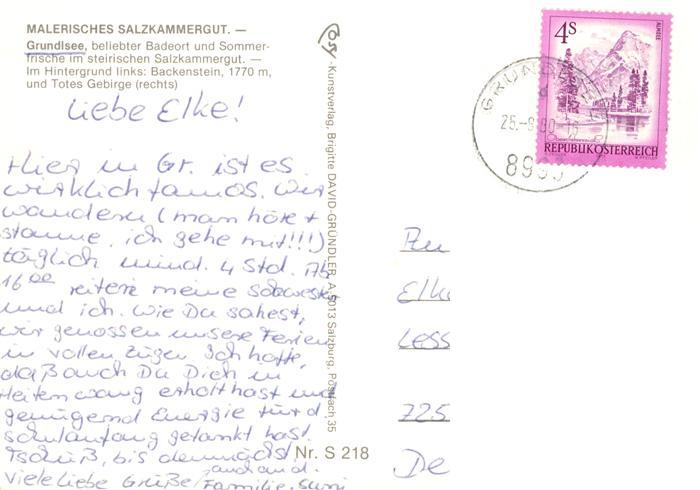 MALERISCHES SALZKAMMERGUT. —
Grundlsee, beliebter Badeort und Sommer-
frische im steirischen Salzkammergut. —
Im Hintergrund links: Backenstein, 1770 m,
und Totes Gebirge (rechts)
Liebe Elke!
Hier in Gr. ist es
wirklich famos. Wir
wandern (man höre +
staune, ich gehe mit!!!)
täglich mind. 4 Std. Ab
16 00 reiten meine Schwester
und ich. Wie Du sahest,
wir genossen unsere Ferien
in vollen Zügen. Ich hoffe,
daß auch Du Dich in
Heiterwang erholt hast und
genügend Energie für d.
Schulanfang getankt hast.
Tschüß, bis demnächst,
viele liebe Grüße
auch an d.
Familie, Susi
Kunstverlag, Brigitte DAVID-GRÜNDLER, A-5013 Salzburg, Postfach 35
Nr. S 218
4 S
ALMSEE
REPUBLIK ÖSTERREICH
25.-8.80
899
Elke
Less
725
De